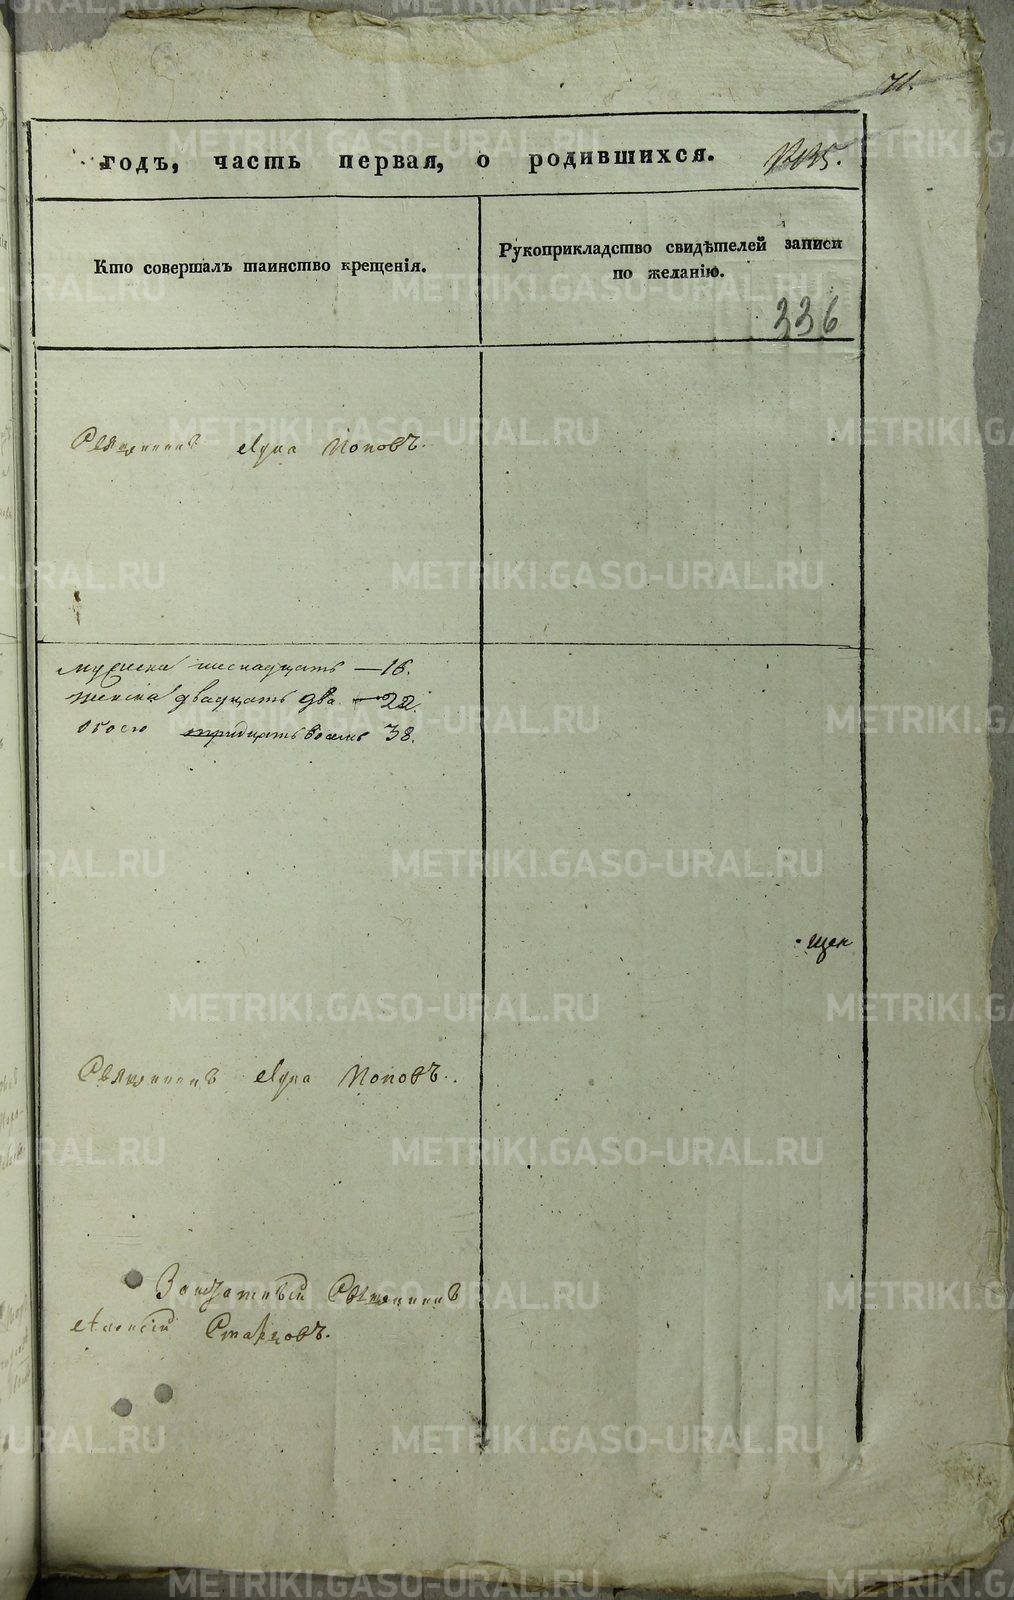 71.
годъ, часть первая, о родившихся.
Кто совершалъ таинство крещенія.
Рукоприкладство свидѣтелей записи
по желанію.
336
Священникъ Лука Поповъ.
мужеска шеснадцать — 16.
женска двадцать два — 22.
обоего тридцать восемь 38.
щен
Священникъ Лука Поповъ.
Священникъ
Старцовъ.
METRIKI.GASO-URAL.RU